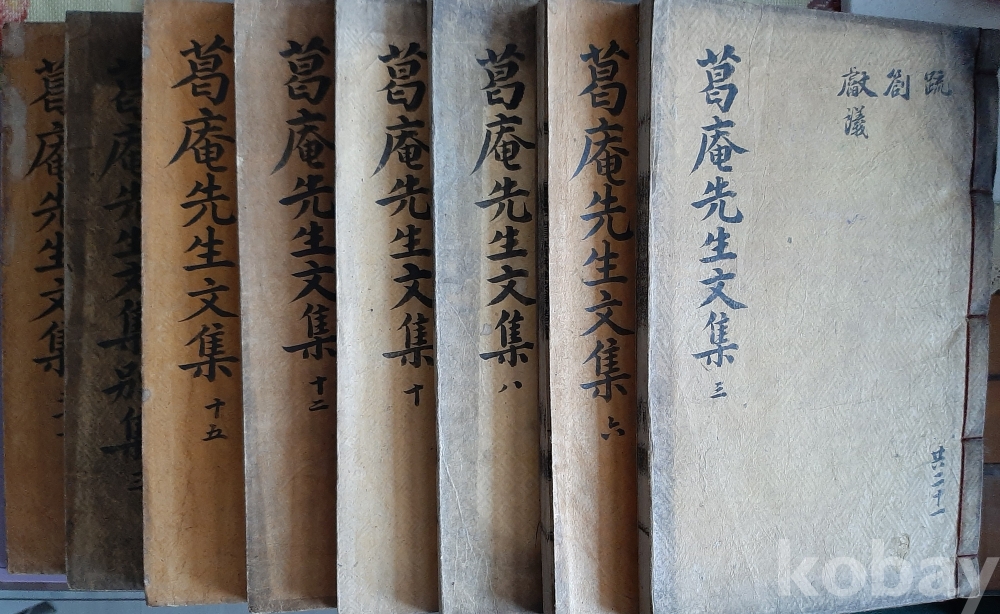 疏
劄
獻議
葛庵先生文集 三
共二十一
葛庵先生文集 六
葛庵先生文集 八
葛庵先生文集 十
葛庵先生文集 十二
葛庵先生文集 十五
葛庵先生文集別集 三
葛庵先生文集
kobay